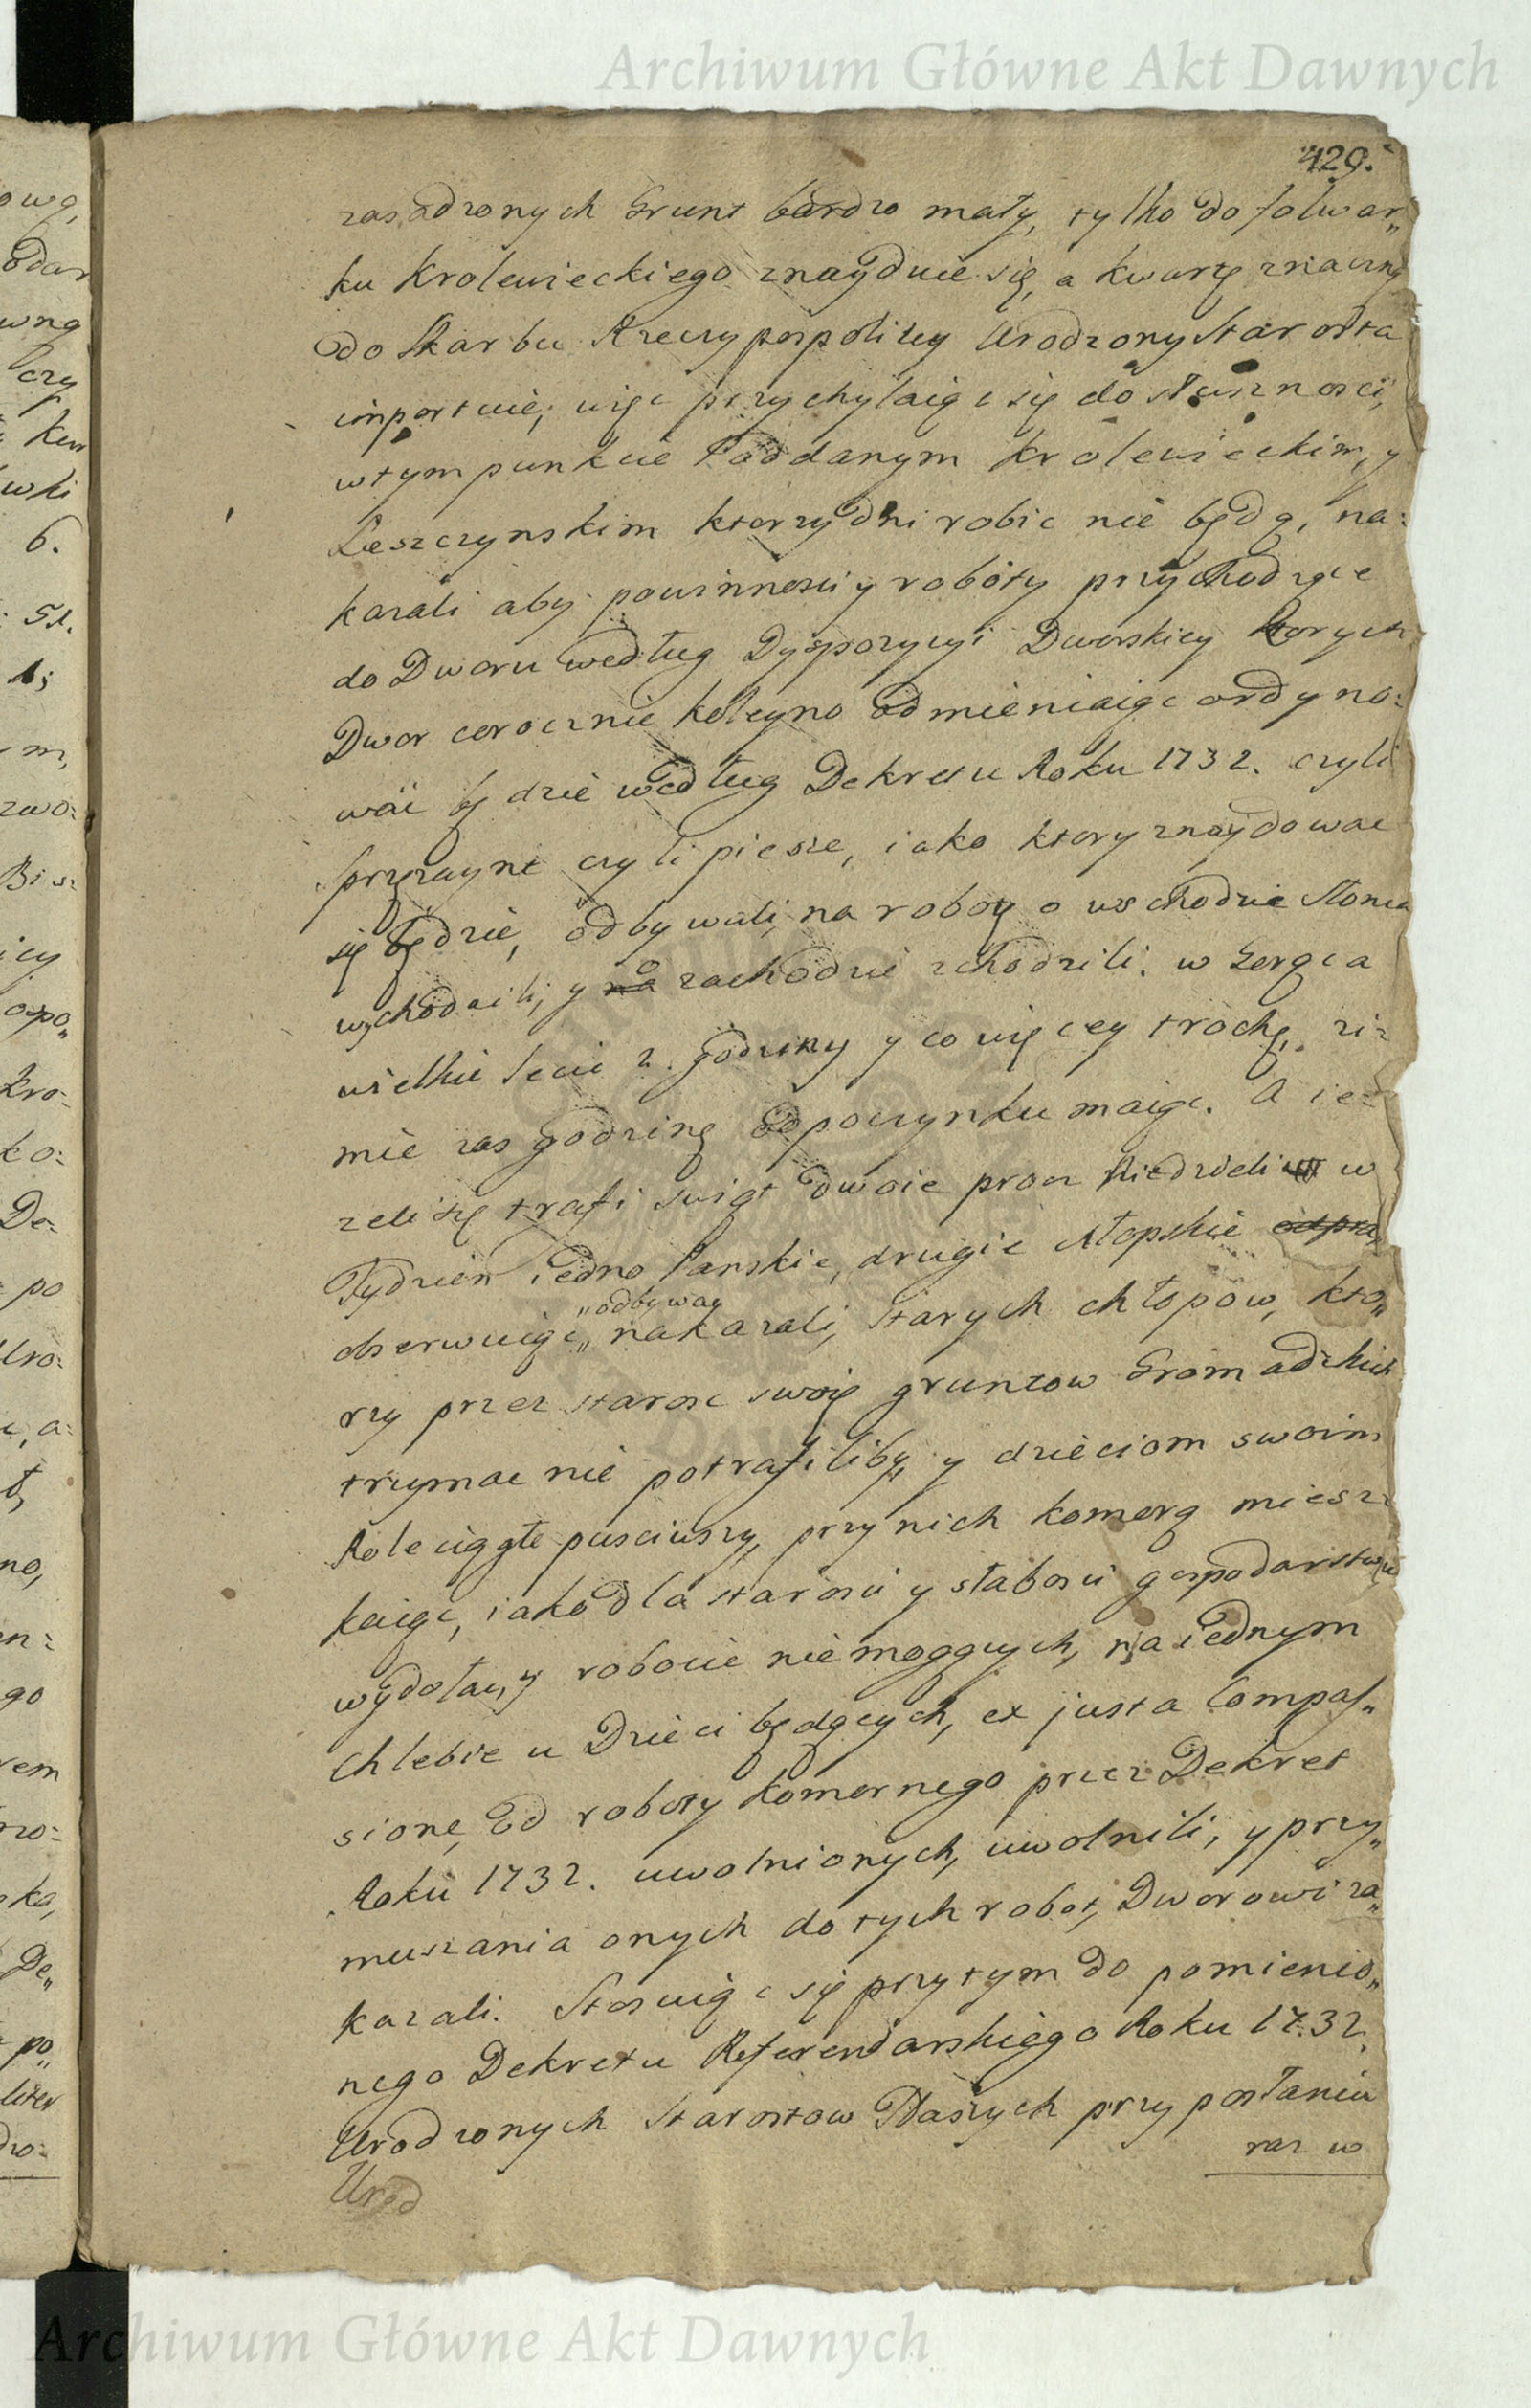 Archiwum Główne Akt Dawnych
429.
zasadzonych Grunt bardzo mały, tylko do folwar„
ku Krolewieckiego znayduie się, a kwartę znaczną
do Skarbu Rzeczypospolitey Urodzony Starosta
importuie; więc przychylaiąc się do słusznosci,
w tym punkcie Poddanym Krolewieckim, y
Leszczynskim ktorzy dni robic nie będą, na:
kazali aby powinnosci y roboty przychodzące
do Dworu według Dyspozycyi Dworskiey ktorych
Dwor corocznie koleyno odmieniaiąc ordyno:
wać będzie według Dekretu Roku 1732. czyli
sprzężayne czyli piesze, iako ktory znaydowac
się będzie, odbywali, na robotę o wschodzie Słonca
wychodzili, y o zachodzie zchodzili. w Gorąca
wielkie lecie 2. godziny y co więcey trochę, zi:
mie zas godzinę odpoczynku maiąc. A ie:
zeli się trafi swiąt dwoie procz Niedzieli w
Tydzien iedno Panskie, drugie chłopskie odpra„
obserwuiąc „odbywać„ nakazali, starych chłopow, kto„
rzy przez starosc swoię gruntow Gromadzkich
trzymac nie potrafiliby, y dzieciom swoim
Role ciągłe pusciwszy, przy nich komorą miesz:
kaiąc, iako dla starosci y słabosci gospodarstwu
wydołac, y robocie niemogących, na iednym
chlebie u Dzieci będących, ex justa Compas„
sione, od roboty komornego przez Dekret
Roku 1732. uwolnionych, uwolnili, y przy„
muszania onych do tych robot, Dworowi za„
kazali. Stosuiąc się przytym do pomienio„
nego Dekretu Referendarskiego Roku 1732.
Urodzonych Starostow Naszych przy posłaniu
raz w
Urod
Archiwum Główne Akt Dawnych